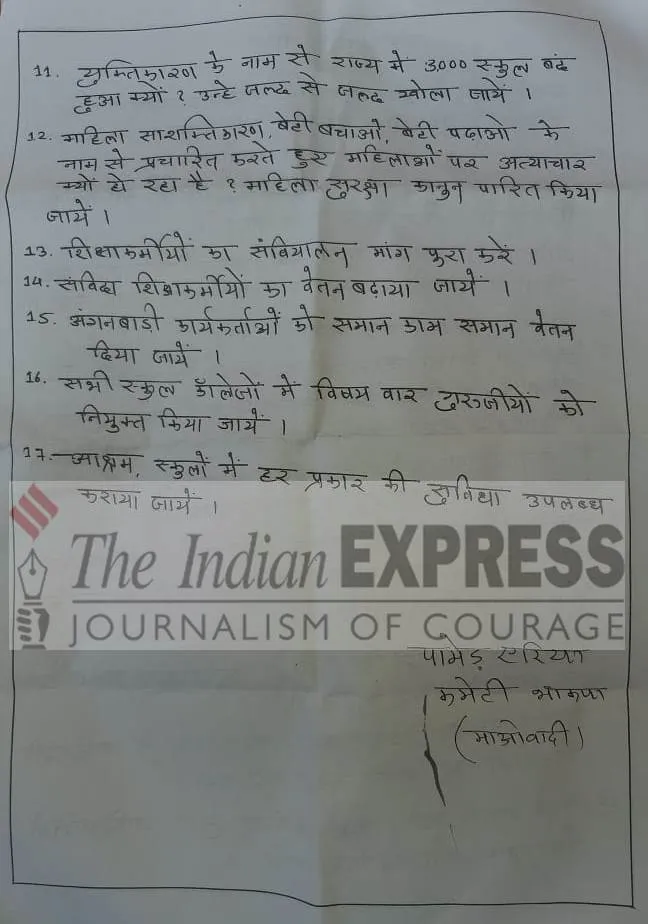 11. युक्तिकारण के नाम से राज्य में 3,000 स्कुल बंद
हुआ क्यों ? उन्हे जल्द से जल्द खोला जायें ।
12. महिला साशक्तिकारण, बेटी बचाओ, बेटी पढाओ के
नाम से प्रचारित करते हुए महिलाओं पर अत्याचार
क्यों हो रहा है ? महिला सुरक्षा कानुन पारित किया
जायें ।
13. शिक्षाकर्मीयों का संवियालन मांग पुरा करें ।
14. संविदा शिक्षाकर्मीयों का वेतन बढ़ाया जायें ।
15. अंगनबाड़ी कार्यकर्ताओं को समान काम समान वेतन
दिया जायें ।
16. सभी स्कुल कॉलेजों में विषय वार गुरुजीयों को
नियुक्त किया जायें ।
17. आश्रम, स्कुलों में हर प्रकार की सुविधा उपलब्ध
कराया जायें ।
The Indian EXPRESS
JOURNALISM OF COURAGE
पामेड़ एरिया
कमेटी भाकपा
(माओवादी)